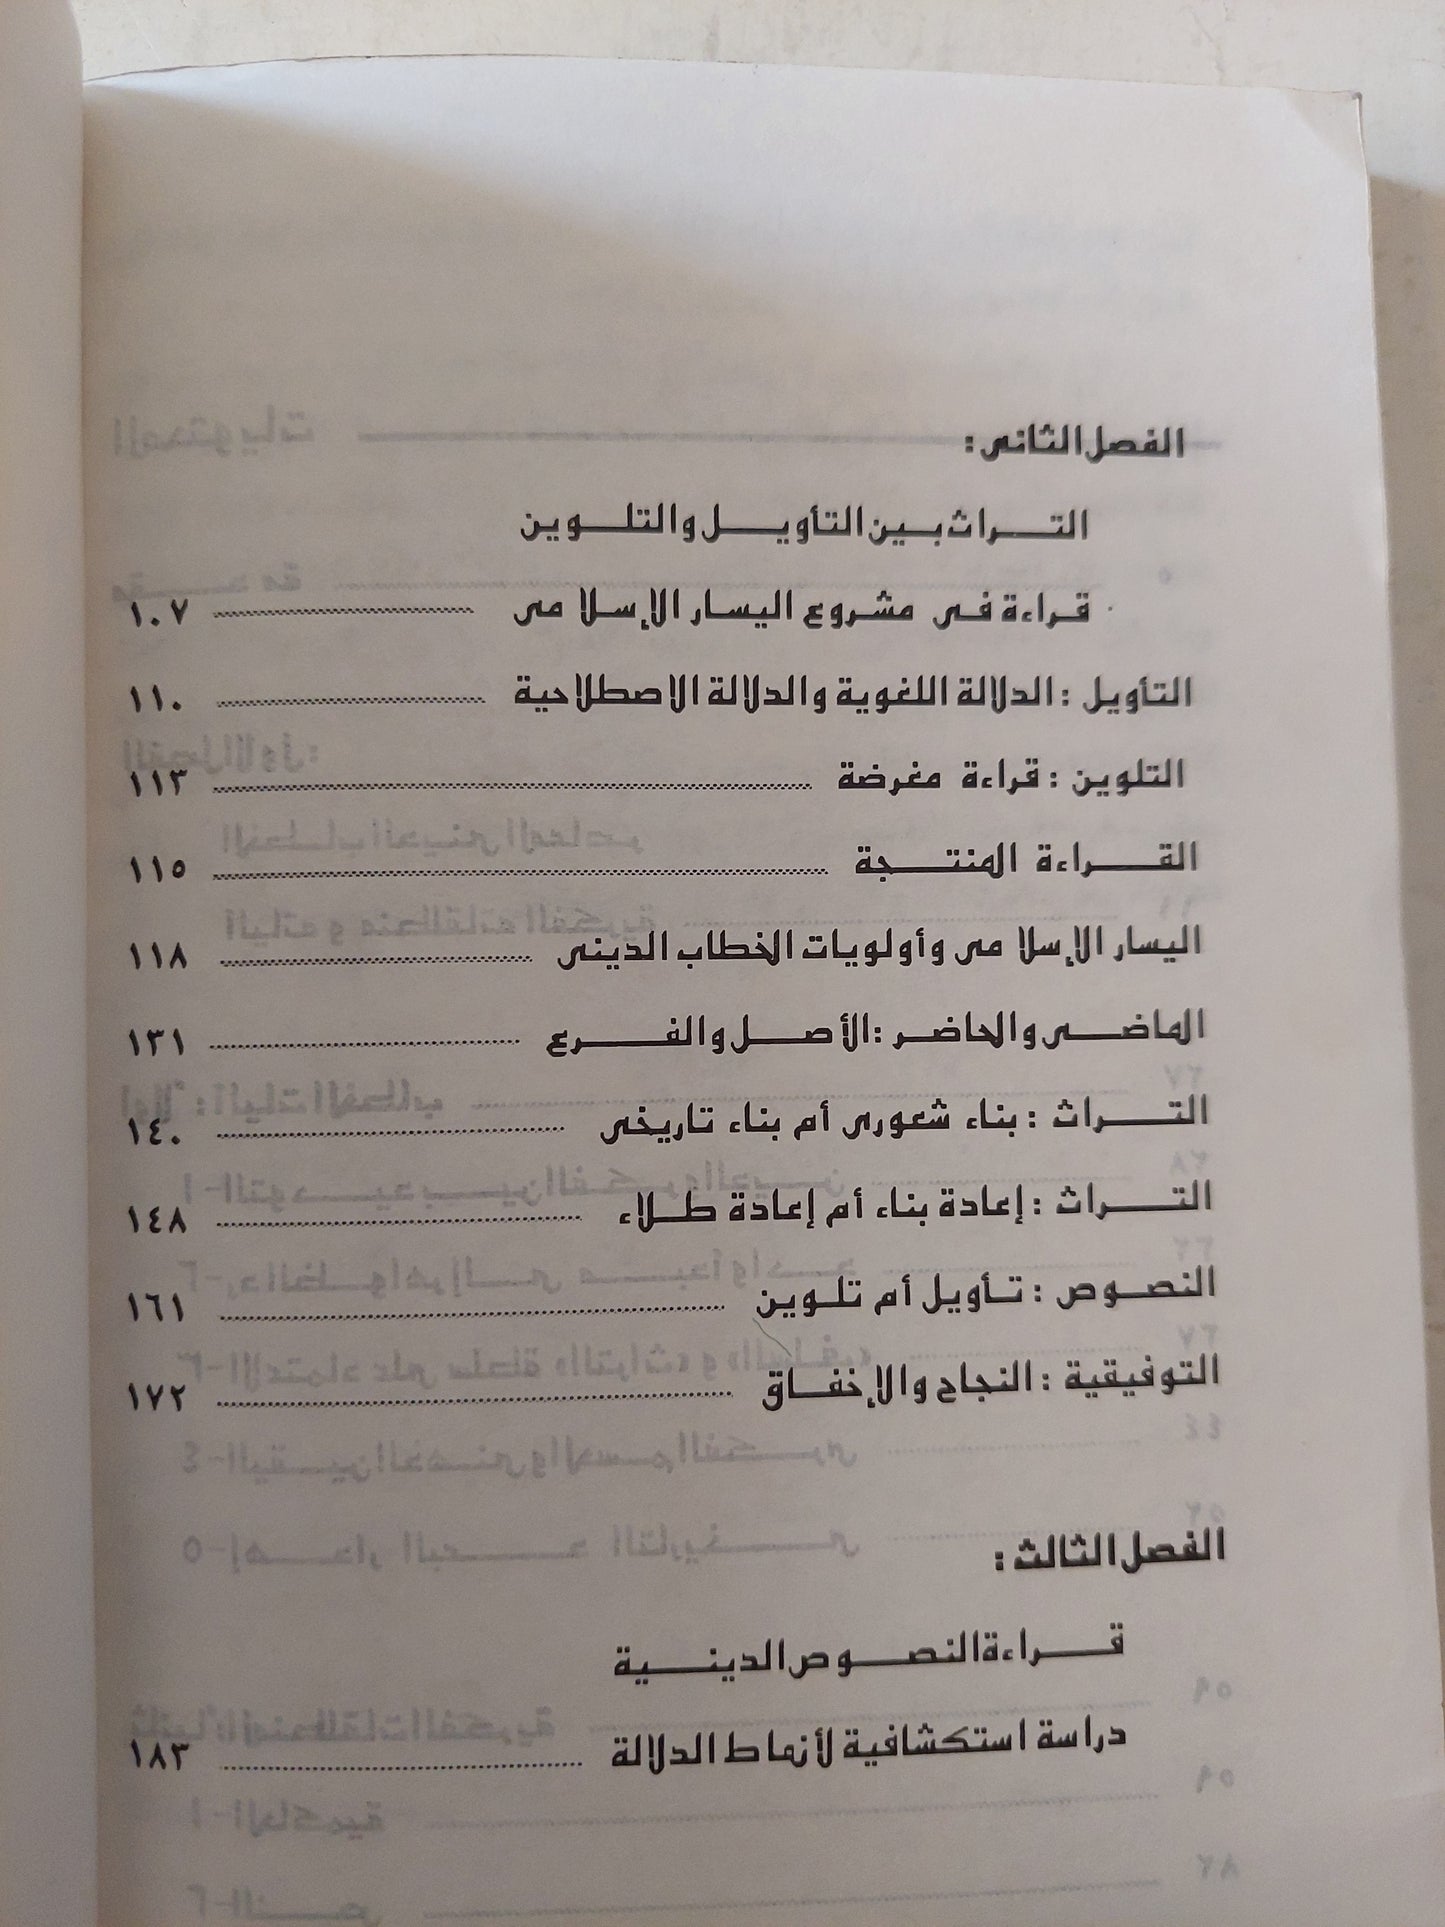 الفصل الثانى :
التراث بين التأويل والتلوين
قراءة فى مشروع اليسار الإسلامى ١٠٧
التأويل : الدلالة اللغوية والدلالة الاصطلاحية ١١٠
التلوين : قراءة مغرضة ١١٣
القراءة المنتجة ١١٥
اليسار الإسلامى وأولويات الخطاب الدينى ١١٨
الماضى والحاضر : الأصل والفرع ١٣١
التراث : بناء شعورى أم بناء تاريخى ١٤٠
التراث : إعادة بناء أم إعادة طلاء ١٤٨
النصوص : تأويل أم تلوين ١٦١
التوفيقية : النجاح والإخفاق ١٧٢
الفصل الثالث :
قراءة النصوص الدينية
دراسة استكشافية لأنماط الدلالة ١٨٣